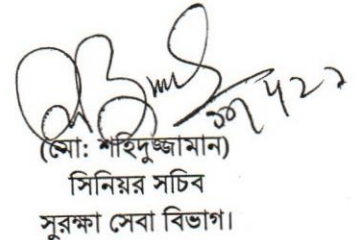 (মো: শহিদুজ্জামান)
সিনিয়র সচিব
সুরক্ষা সেবা বিভাগ।